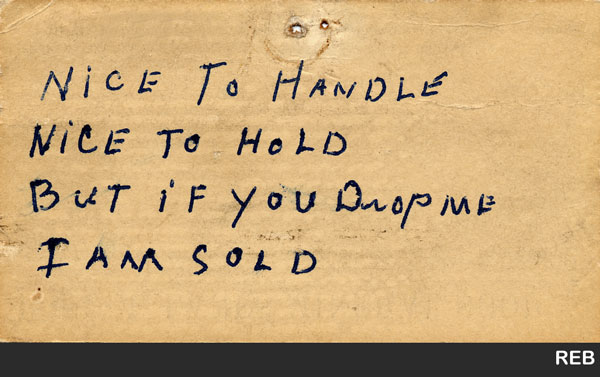 NiCE To HANDLE
NiCE TO HoLD
BuT iF YOU DropME
I AM SOLD
REB